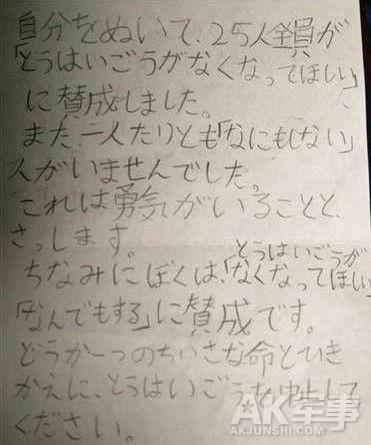 自分をぬいて、25人全員が
「とうはいごうがなくなってほしい」
に賛成しました。
また、一人たりとも「なにもしない」
人がいませんでした。
これは勇気がいることと、
さっします。
とうはいごうが
ちなみにぼくは、「なくなってほしい」
「なんでもする」に賛成です。
どうか一つのちいさな命とひき
かえに、とうはいごうを中止して
ください。
AK军事
AKJUNSHI.COM